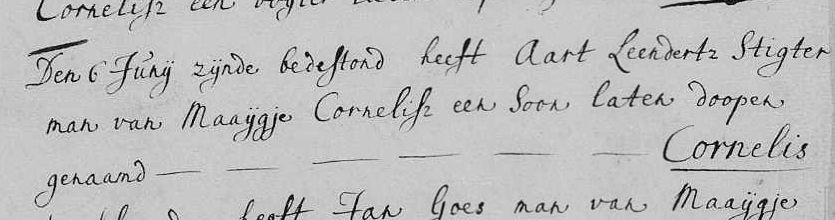 Cornelisz een
Den 6 Junÿ zÿnde bedestond heeft Aart Leendertz Stigter
man van Maaÿgje Cornelisz een Soon laten doopen
genaand — — — — — — Cornelis
heeft Jan Goes man van Maaÿgje